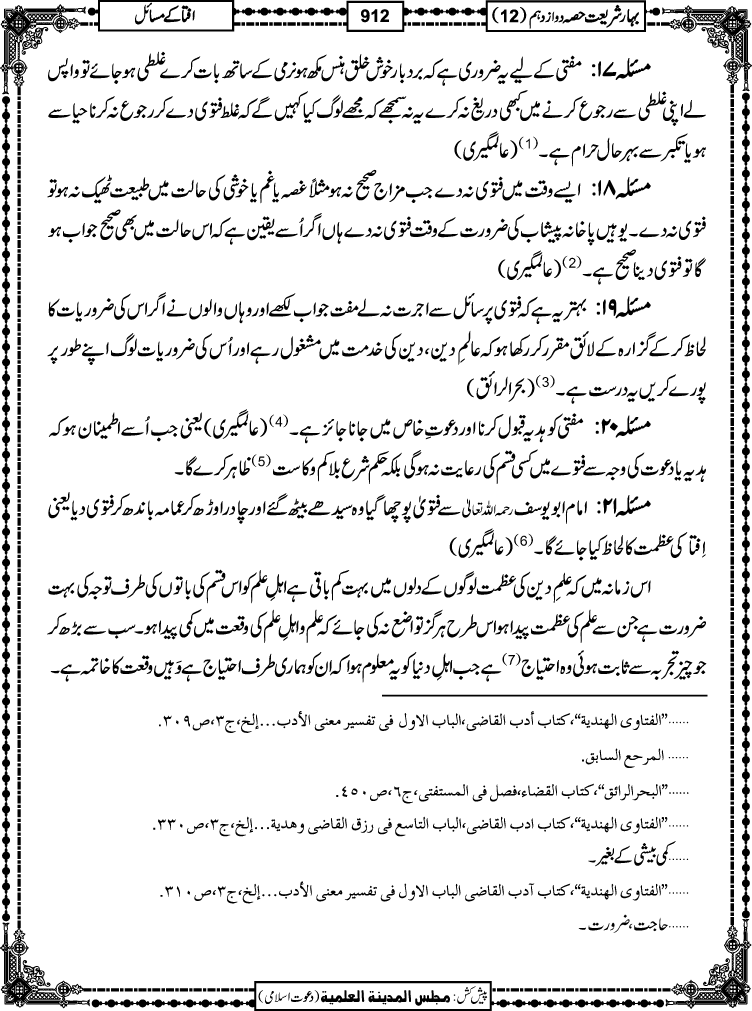 بہارِ شریعت حصہ دوازدہم (12)
912
افتا کے مسائل
مسئلہ ۱۷: مفتی کے لیے یہ ضروری ہے کہ بردبار خوش خلق ہنس مکھ ہو نرمی کے ساتھ بات کرے غلطی ہو جائے تو واپس
لے اپنی غلطی سے رجوع کرنے میں کبھی دریغ نہ کرے یہ نہ سمجھے کہ مجھے لوگ کیا کہیں گے کہ غلط فتوی دے کر رجوع نہ کرنا حیا سے
ہو یا تکبر سے بہر حال حرام ہے۔(1) (عالمگیری)
مسئلہ ۱۸: ایسے وقت میں فتوی نہ دے جب مزاج صحیح نہ ہو مثلاً غصہ یا غم یا خوشی کی حالت میں طبیعت ٹھیک نہ ہو تو
فتوی نہ دے۔ یوہیں پاخانہ پیشاب کی ضرورت کے وقت فتوی نہ دے ہاں اگر اُسے یقین ہے کہ اس حالت میں بھی صحیح جواب ہو
گا تو فتوی دینا صحیح ہے۔(2) (عالمگیری)
مسئلہ ۱۹: بہتر یہ ہے کہ فتوی پر سائل سے اجرت نہ لے مفت جواب لکھے اور وہاں والوں نے اگر اس کی ضروریات کا
لحاظ کر کے گزارہ کے لائق مقرر کر رکھا ہو کہ عالمِ دین، دین کی خدمت میں مشغول رہے اور اُس کی ضروریات لوگ اپنے طور پر
پورے کریں یہ درست ہے۔(3) (بحر الرائق)
مسئلہ ۲۰: مفتی کو ہدیہ قبول کرنا اور دعوتِ خاص میں جانا جائز ہے۔(4) (عالمگیری) یعنی جب اُسے اطمینان ہو کہ
ہدیہ یا دعوت کی وجہ سے فتوے میں کسی قسم کی رعایت نہ ہوگی بلکہ حکم شرع بلا کم و کاست(5) ظاہر کرے گا۔
مسئلہ ۲۱: امام ابو یوسف رحمہ اللہ تعالٰی سے فتویٰ پوچھا گیا وہ سیدھے بیٹھ گئے اور چادر اوڑھ کر عمامہ باندھ کر فتوی دیا یعنی
اِفتا کی عظمت کا لحاظ کیا جائے گا۔(6) (عالمگیری)
اس زمانہ میں کہ علمِ دین کی عظمت لوگوں کے دلوں میں بہت کم باقی ہے اہلِ علم کو اس قسم کی باتوں کی طرف توجہ کی بہت
ضرورت ہے جن سے علم کی عظمت پیدا ہو اس طرح ہرگز تواضع نہ کی جائے کہ علم و اہلِ علم کی وقعت میں کمی پیدا ہو۔ سب سے بڑھ کر
جو چیز تجربہ سے ثابت ہوئی وہ احتیاج(7) ہے جب اہلِ دنیا کو یہ معلوم ہوا کہ ان کو ہماری طرف احتیاج ہے وَہیں وقعت کا خاتمہ ہے۔
......”الفتاوی الھندیة“، کتاب أدب القاضی، الباب الاول فی تفسیر معنی الأدب...إلخ، ج۳، ص۳۰۹.
...... المرجع السابق.
......”البحر الرائق“، کتاب القضاء، فصل فی المستفتی، ج۶، ص۴۵۰.
......”الفتاوی الھندیة“، کتاب ادب القاضی، الباب التاسع فی رزق القاضی وهدیة...إلخ، ج۳، ص۳۳۰.
......کمی بیشی کے بغیر۔
......”الفتاوی الھندیة“، کتاب آدب القاضی الباب الاول فی تفسیر معنی الأدب...إلخ، ج۳، ص۳۱۰.
......حاجت، ضرورت۔
پیش کش: مجلس المدینة العلمیة (دعوت اسلامی)